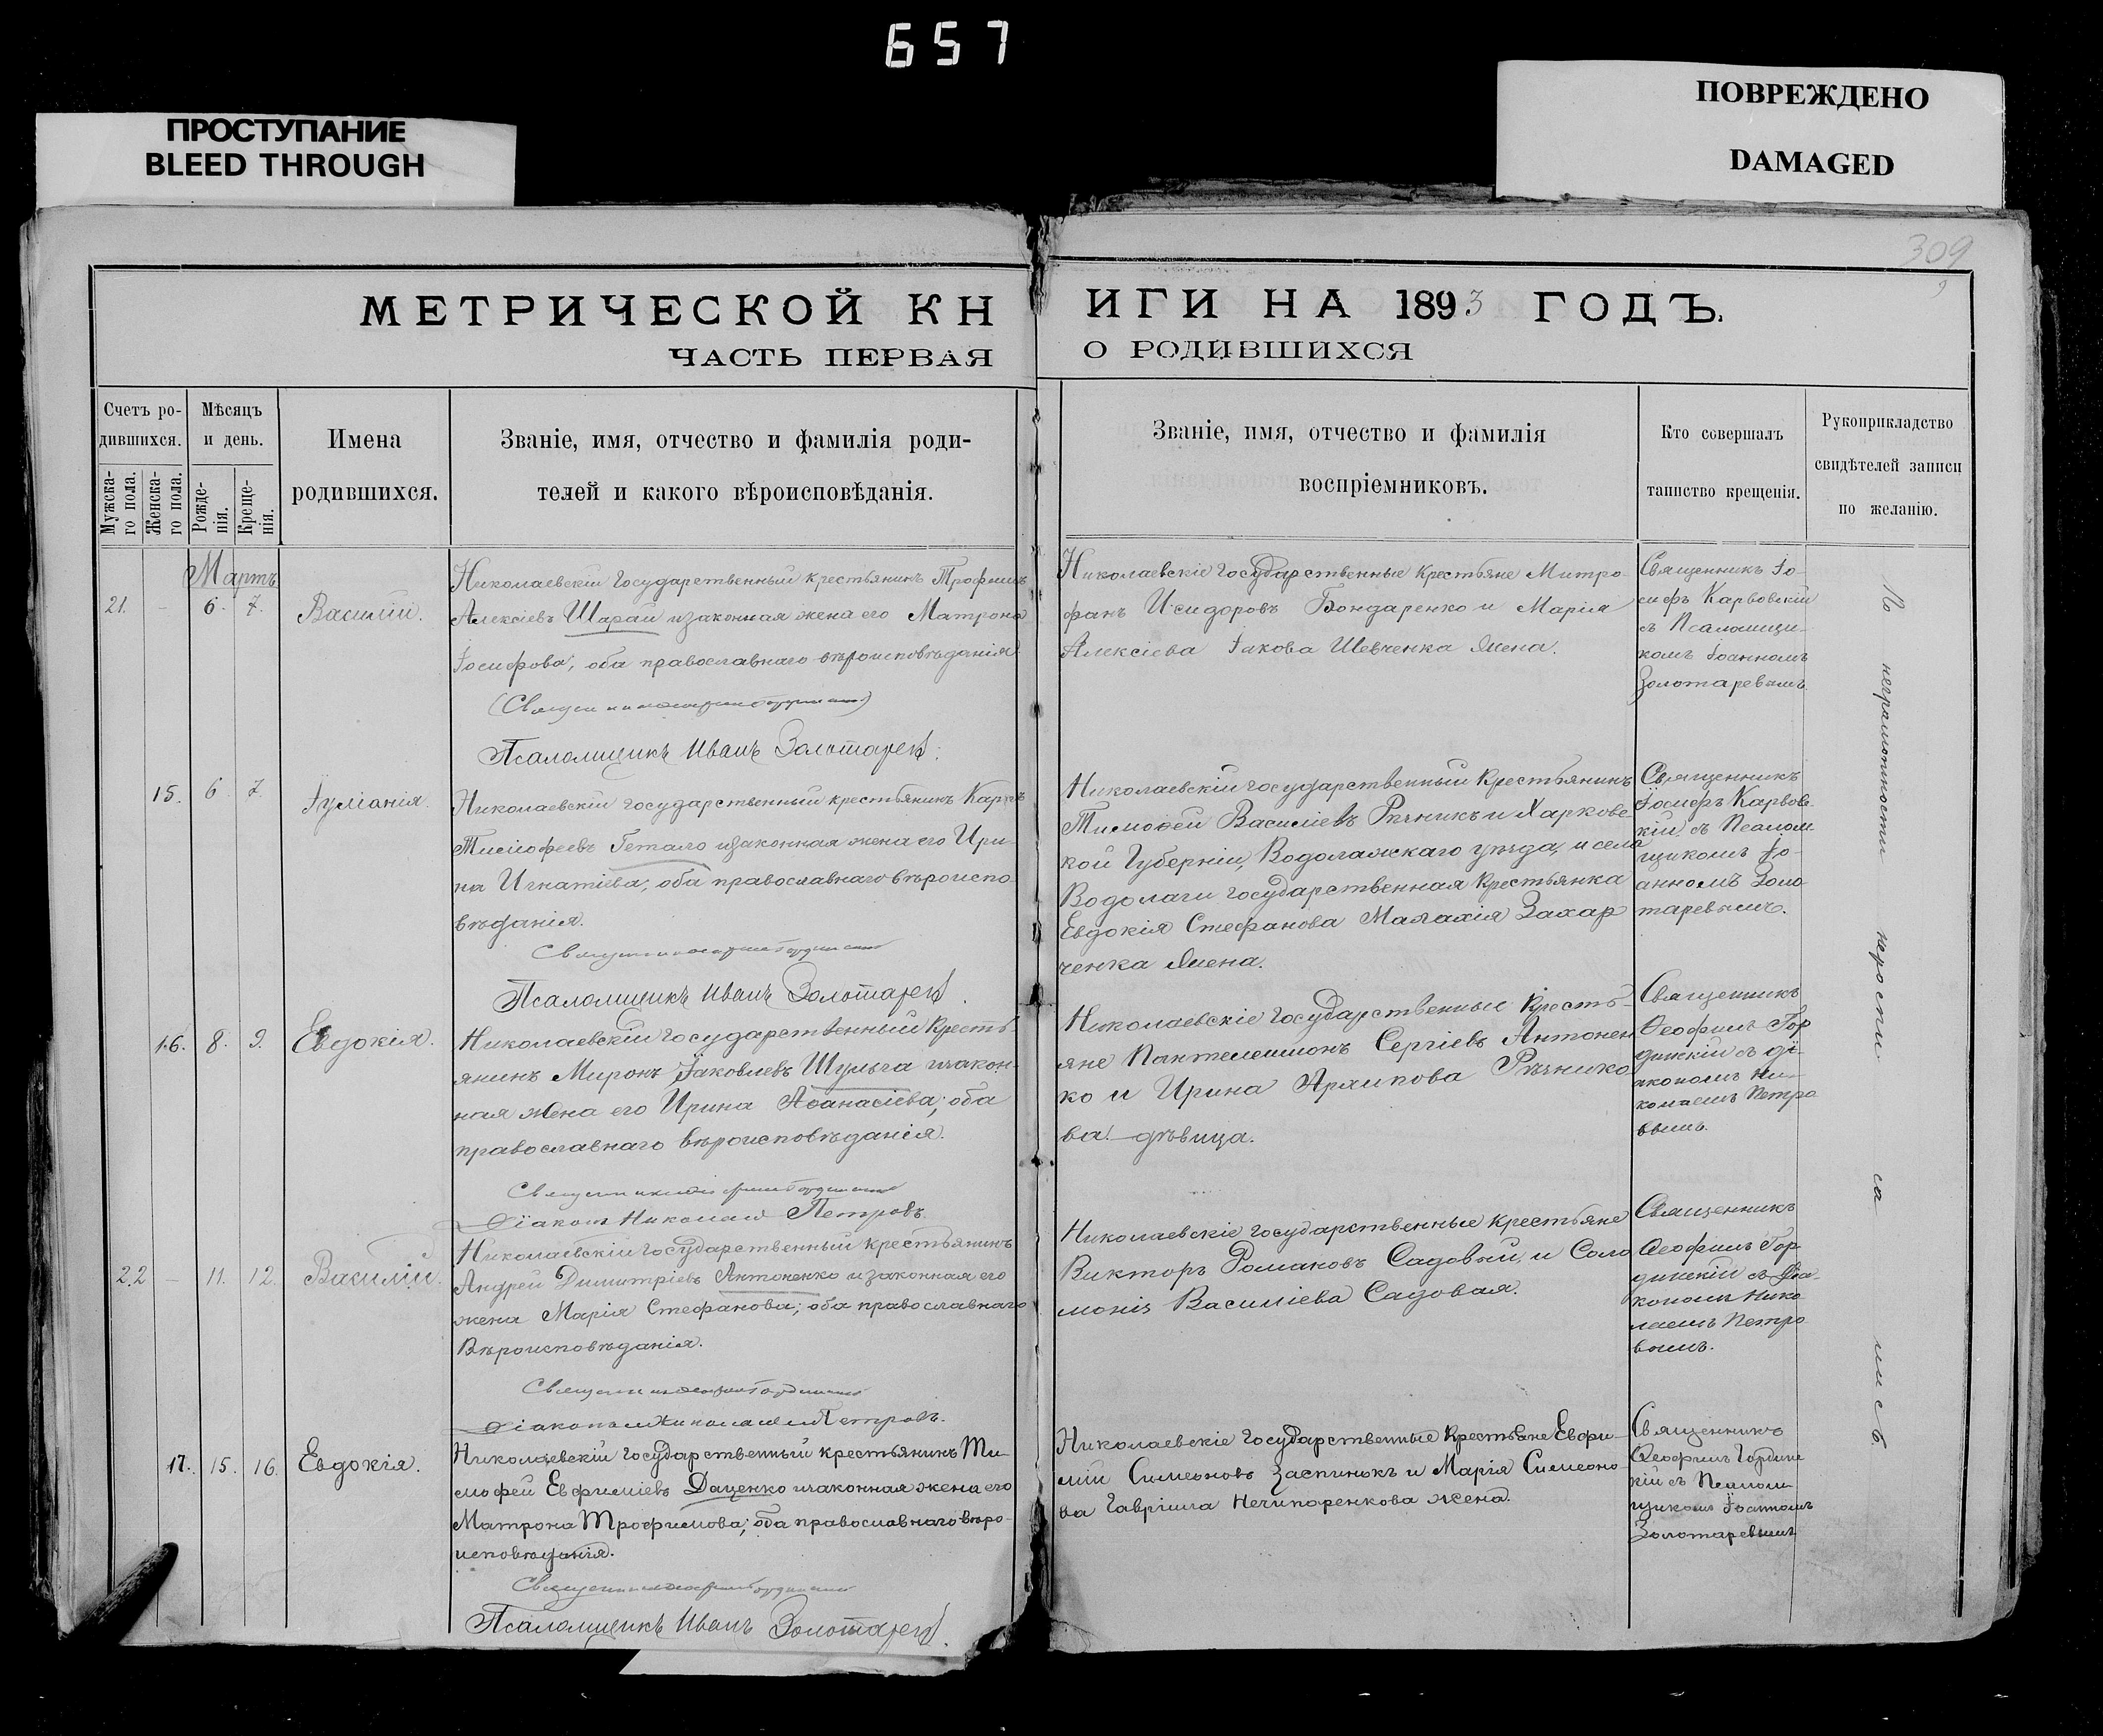 657
ПРОСТУПАНИЕ
BLEED THROUGH
ПОВРЕЖДЕНО
DAMAGED
309
МЕТРИЧЕСКОЙ КН
ИГИ НА 1893 ГОДЪ.
ЧАСТЬ ПЕРВАЯ
О РОДИВШИХСЯ
Счетъ ро-
дившихся.
Мужска-
го пола.
Женска-
го пола.
Мѣсяцъ
и день.
Рожде-
нія.
Креще-
нія.
Имена
родившихся.
Званіе, имя, отчество и фамилія роди-
телей и какого вѣроисповѣданія.
Званіе, имя, отчество и фамилія
воспріемниковъ.
Кто совершалъ
таинство крещенія.
Рукоприкладство
свидѣтелей записи
по желанію.
Мартъ
21. – 6. 7. Василій.
Николаевскій государственный крестьянинъ Трофимъ
Алексіевъ Шарай и законная жена его Матрона
Іосифова, оба православнаго вѣроисповѣданія
Псаломщикъ Иванъ Золотаревъ.
Николаевскіе государственные крестьяне Митро-
фанъ Исидоровъ Бондаренко и Марія
Алексіева Іакова Шевченка жена.
Священникъ Іо-
сифъ Карвовскій
съ Псаломщи-
комъ Іоанномъ
Золотаревымъ
15. 6. 7. Іуліанія.
Николаевскій государственный крестьянинъ Карпъ
Тимофеевъ Гетало и законная жена его Ири-
на Игнатіева; оба православнаго вѣроиспо-
вѣданія.
Псаломщикъ Иванъ Золотаревъ.
Николаевскій государственный крестьянинъ
Тимоѳей Василіевъ Рѣчникъ и Харковс-
кой Губерніи, Водолажскаго уѣзда, и села
Водолаги государственная крестьянка
Евдокія Стефанова Малахія Захар
ченка жена.
Священникъ
Іосифъ Карвовс
кій съ Псалом-
щикомъ Іо-
анномъ Золо-
таревымъ.
16. 8. 9. Евдокія.
Николаевскій государственный кресть-
янинъ Миронъ Іаковлевъ Шульга и закон-
ная жена его Ирина Аѳанасіева; оба
православнаго вѣроисповѣданія.
Діаконъ Николай Петровъ.
Николаевскіе государственные кресть-
яне Пантелеимонъ Сергіевъ Антонен
ко и Ирина Архипова Рѣчнико-
ва! дѣвица.
Священникъ
Ѳеофилъ Гор
динскій съ ді-
акономъ Ни-
колаемъ Петро
вымъ.
22 – 11. 12. Василій.
Николаевскій государственный крестьянинъ
Андрей Димитріевъ Антоненко и законная его
жена Марія Стефанова; оба православнаго
Вѣроисповѣданія.
Діаконъ Николай Петровъ.
Николаевскіе государственные крестьяне
Викторъ Романовъ Садовый, и Соло
монія Василіева Садовая.
Священникъ
Ѳеофилъ Гор
динскій съ Діа-
кономъ Нико
лаемъ Петро
вымъ.
17. 15. 16. Евдокія.
Николаевскій государственный крестьянинъ Ти-
мофей Евфиміевъ Даценко и законная жена его
Матрона Трофимова; оба православнаго вѣро-
исповѣданія.
Псаломщикъ Иванъ Золотаревъ.
Николаевскіе государственные крестьяне Евфи-
мій Симеоновъ Заспинокъ и Марія Симеоно-
ва Гавріила Нечипоренкова жена.
Священникъ
Ѳеофилъ Гординс
кій съ Псалом-
щикомъ Іоанномъ
Золотаревымъ
По неграмотности